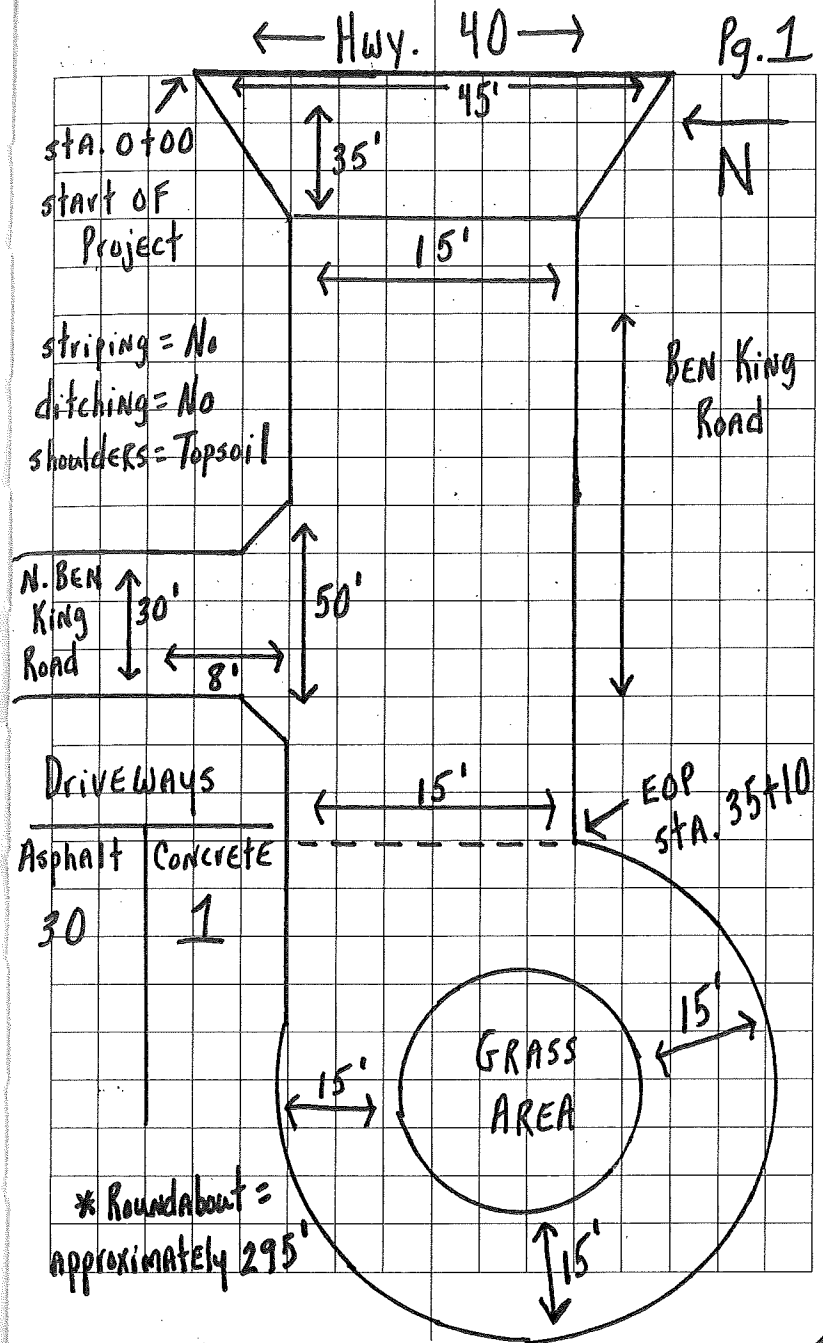 Hwy. 40
Pg. 1
45'
N
stA. 0+00
start of
Project
35'
15'
striping = No
ditching = No
shoulders = Topsoil
BEN King
Road
N. BEN
King
Road
30'
8'
50'
DriVEWAYS
Asphalt
Concrete
30
1
15'
EOP
stA. 35+10
GRASS
AREA
15'
15'
15'
* Roundabout =
approximately 295'